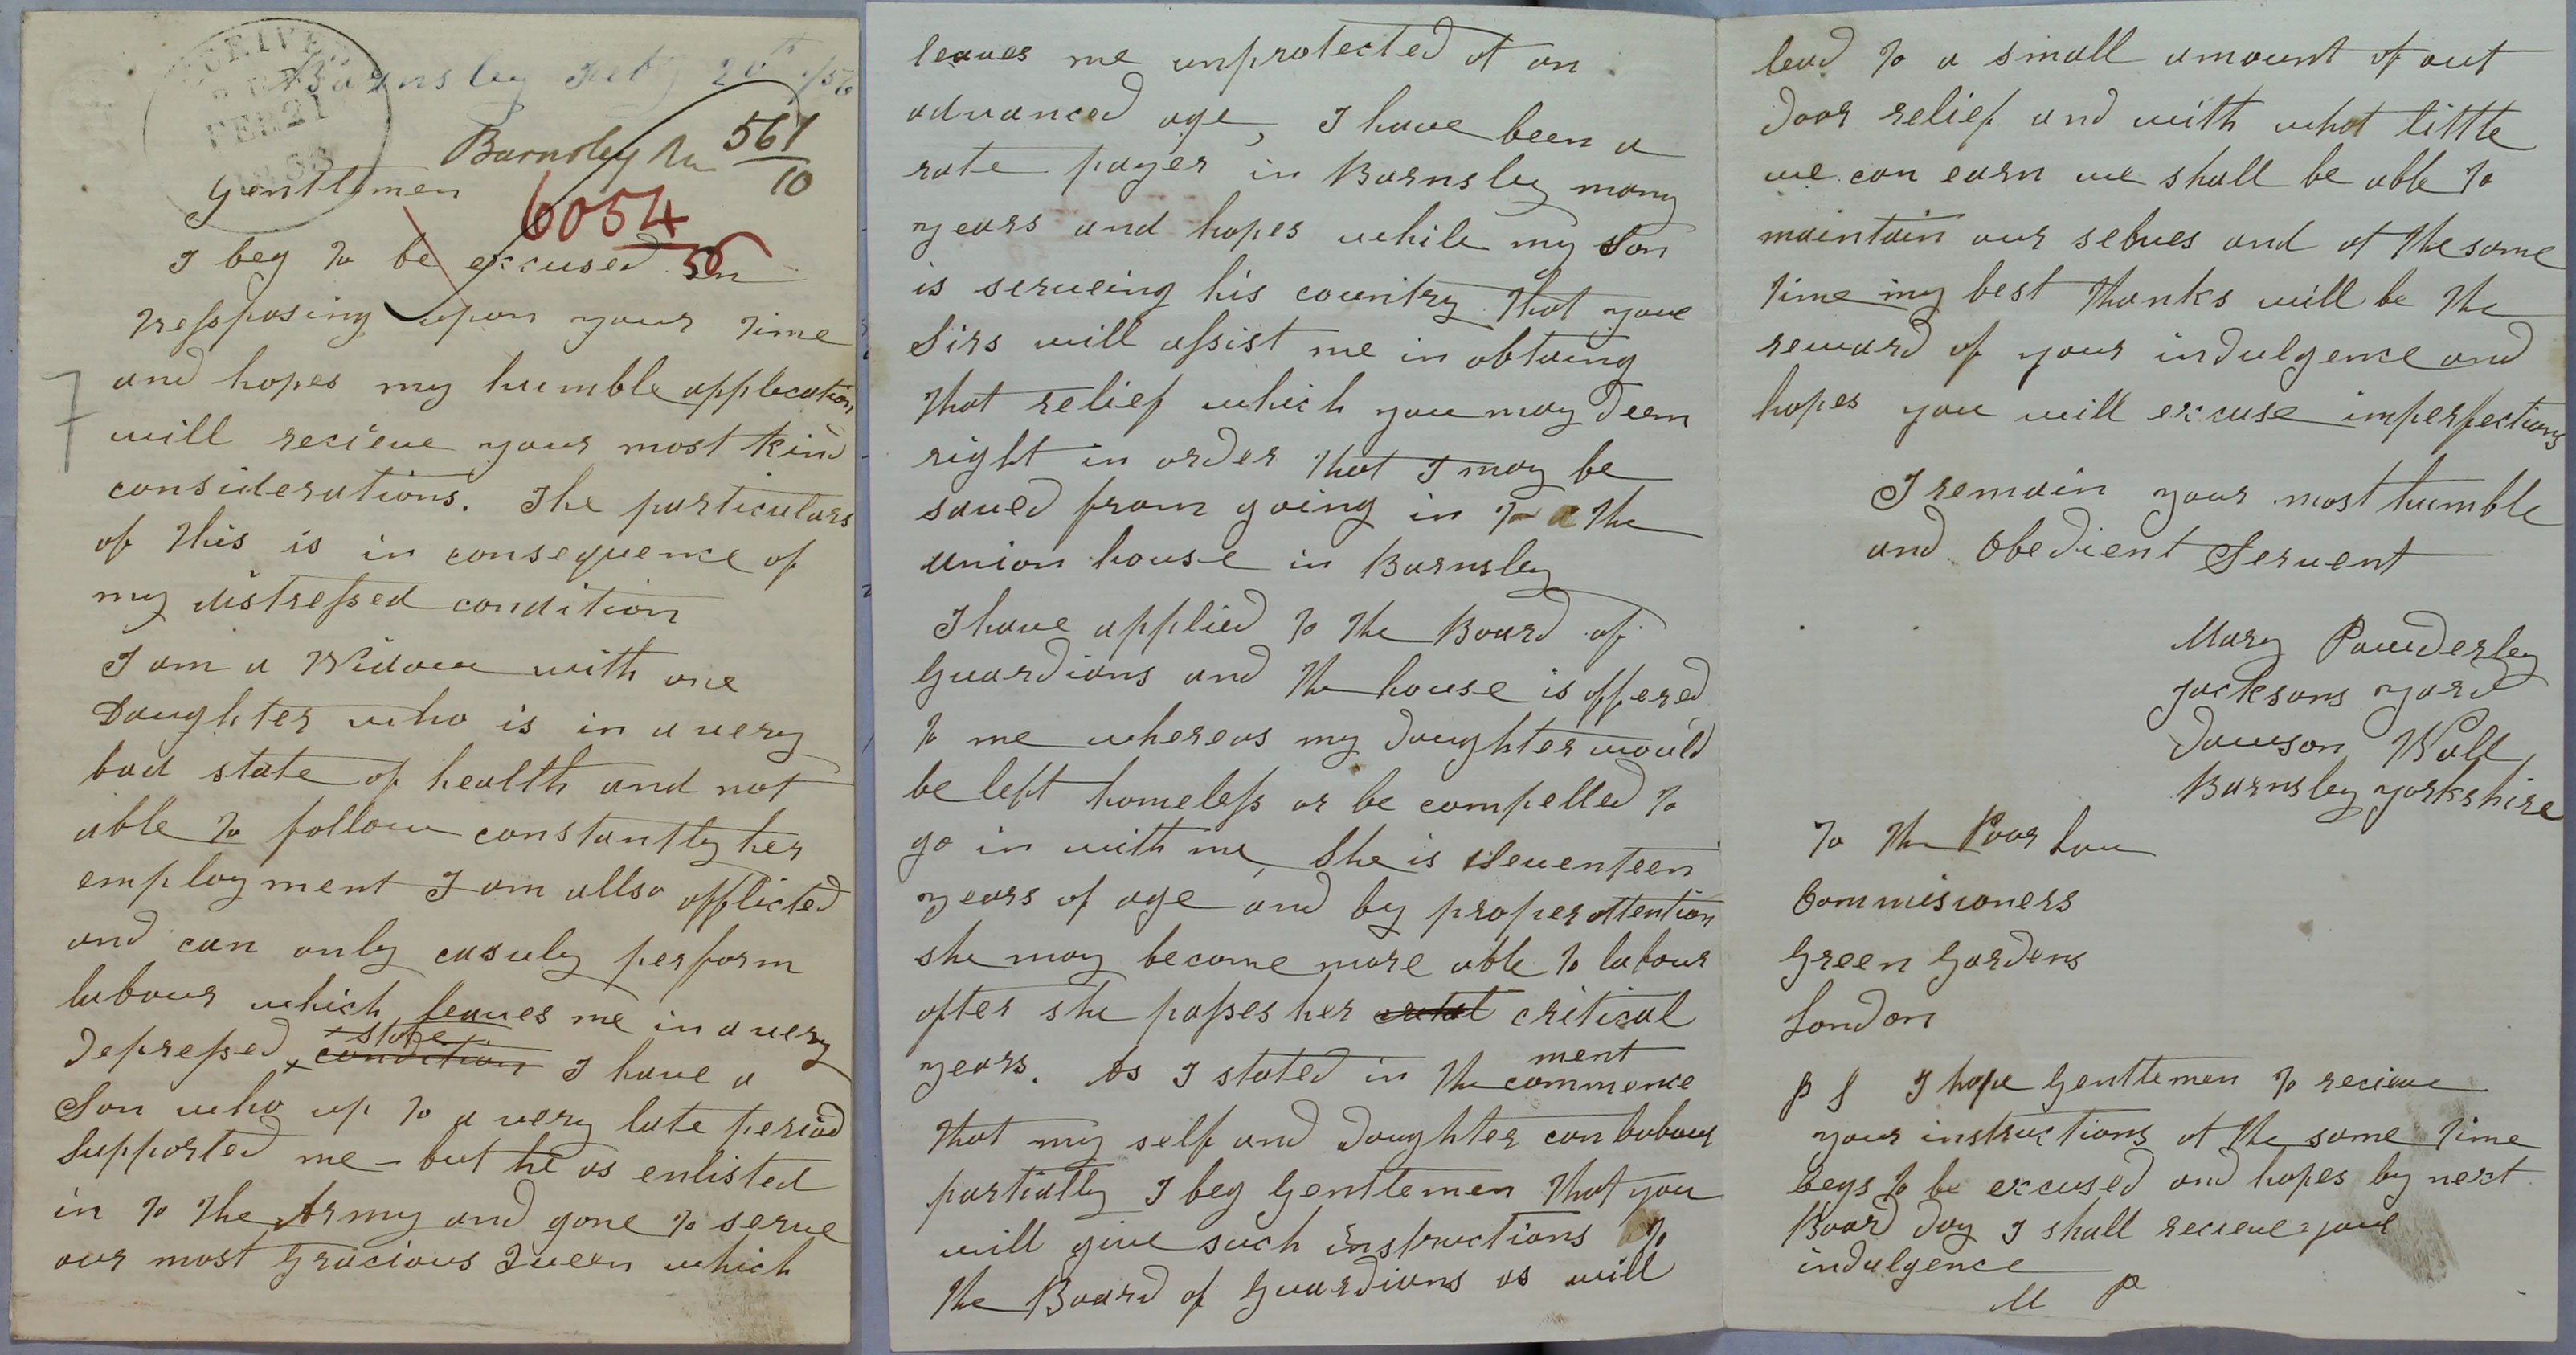 RECEIVED
FEB 21
Barnsley Feby 20th /56
Barnsley Un 561/10
Gentlemen
6054
56
I beg to be excused in
tresspasing upon your time
and hopes my humble application
will recieve your most kind
considerations. The particulars
of this is in consequence of
my distressed condition
I am a Widow with one
Daughter who is in a very
bad state of health and not
able to follow constantly her
employment I am allso afflicted
and can only casuly perform
labour which leaves me in a very
state
depressed condition I have a
Son who up to a very late period
Supported me - but he as enlisted
in to the Army and gone to serve
our most Gracious Queen which
leaves me unprotected at an
advanced age, I have been a
rate payer in Barnsley many
years and hopes while my Son
is serveing his country that your
Sirs will assist me in obtaing
that relief which you may deem
right in order that I may be
saved from going in to a the
union house in Barnsley
I have applied to the Board of
Guardians and the house is offered
to me whereas my daughter would
be left homeless or be compelled to
go in with me, She is Seventeen
years of age and by proper attention
she may become more able to labour
after she passes her critical
years. As I stated in the commence
ment
that my self and daughter can labour
partially I beg Gentlemen that you
will give such instructions to
the Board of Guardians as will
lead to a small amount of out
door relief and with what little
we can earn we shall be able to
maintain our selves and at the same
time my best thanks will be the
reward of your indulgence and
hopes you will excuse imperfections
I remain your most humble
and Obedient Servent
Mary Powderley
Jacksons yard
Dawson Wall
Barnsley Yorkshire
To the Poor Law
Commisioners
Green Gardens
London
P S I hope Gentlemen to recieve
your instructions at the same time
begs to be excused and hopes by next
Board day I shall recieve your
indulgence
M P